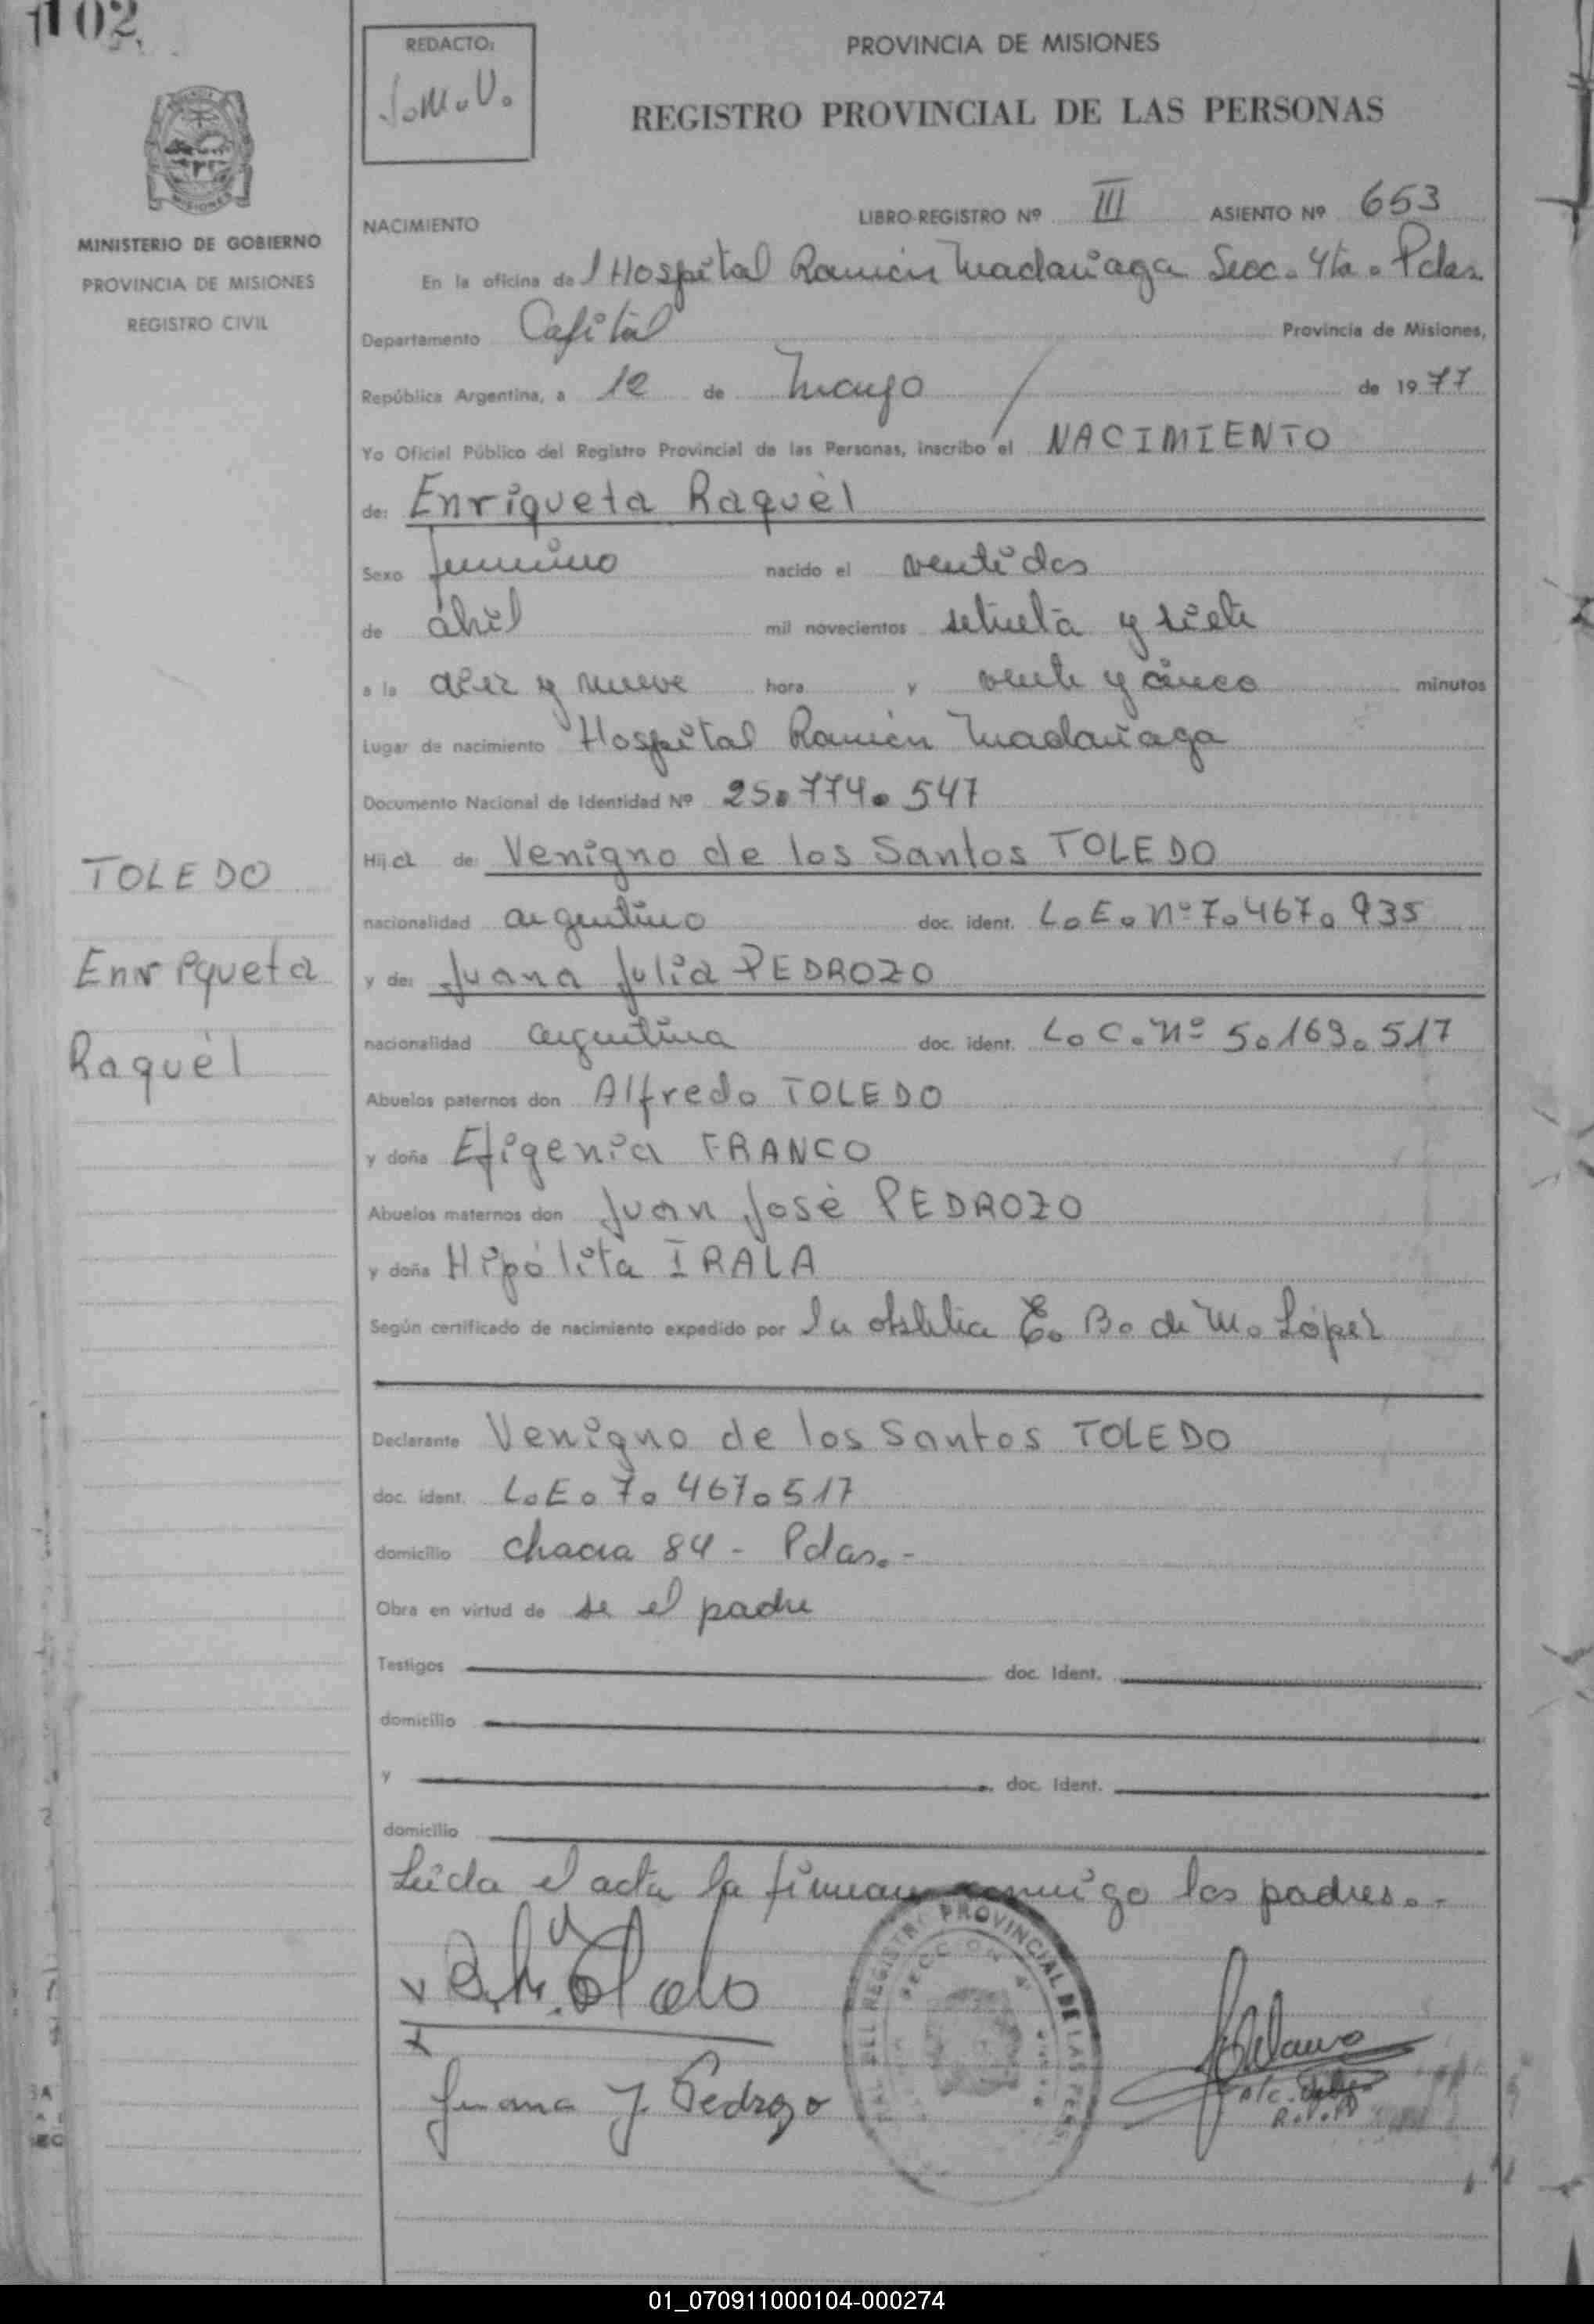 1102
REDACTO:
J.M.V.
PROVINCIA DE MISIONES
REGISTRO PROVINCIAL DE LAS PERSONAS
MISIONES
MINISTERIO DE GOBIERNO
PROVINCIA DE MISIONES
REGISTRO CIVIL
NACIMIENTO LIBRO-REGISTRO Nº III ASIENTO Nº 653
En la oficina del Hospital Ramón Madariaga Secc. 4ta. Pdas.
Departamento Capital Provincia de Misiones,
República Argentina, a 12 de Mayo de 1977
Yo Oficial Público del Registro Provincial de las Personas, inscribo el NACIMIENTO
de: Enriqueta Raquèl
Sexo femenino nacido el ventidos
de abril mil novecientos setenta y siete
a la diez y nueve hora y vente y cinco minutos
Lugar de nacimiento Hospital Ramón Madariaga
Documento Nacional de Identidad Nº 25.774.547
Hija de: Venigno de los Santos TOLEDO
nacionalidad argentino doc. ident. L.E. Nº 7.467.935
y de: Juana Julia PEDROZO
nacionalidad argentina doc. ident. L.C. Nº 5.163.517
Abuelos paternos don Alfredo TOLEDO
y doña Efigenia FRANCO
Abuelos maternos don Juan Josè PEDROZO
y doña Hipólita IRALA
Según certificado de nacimiento expedido por la obstetra E. B. de M. López
TOLEDO
Enriqueta
Raquèl
Declarante Venigno de los Santos TOLEDO
doc. ident. L.E. 7.467.517
domicilio Chacra 84 - Pdas.-
Obra en virtud de se el padre
Testigos doc. Ident.
domicilio
y doc. Ident.
domicilio
Leida el acta la firman conmigo los padres.-
REGISTRO PROVINCIAL DE LAS PERS
SECCION 4
Juana J. Pedrozo
01_070911000104-000274